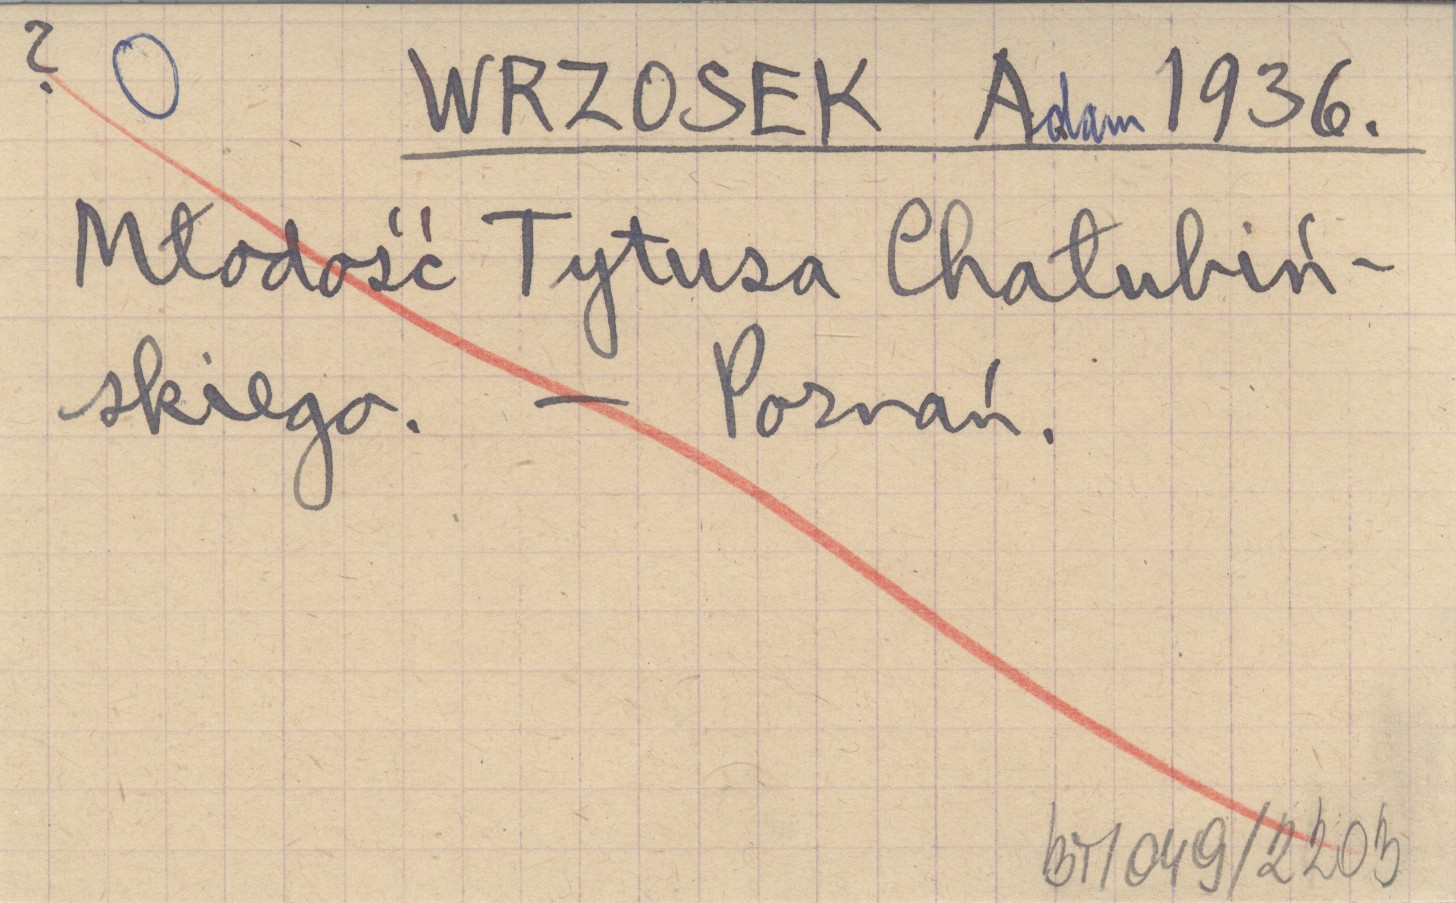 ? O WRZOSEK Adam 1936.
Młodość Tytusa Chałubiń-
skiego. — Poznań.
BT/049/2203